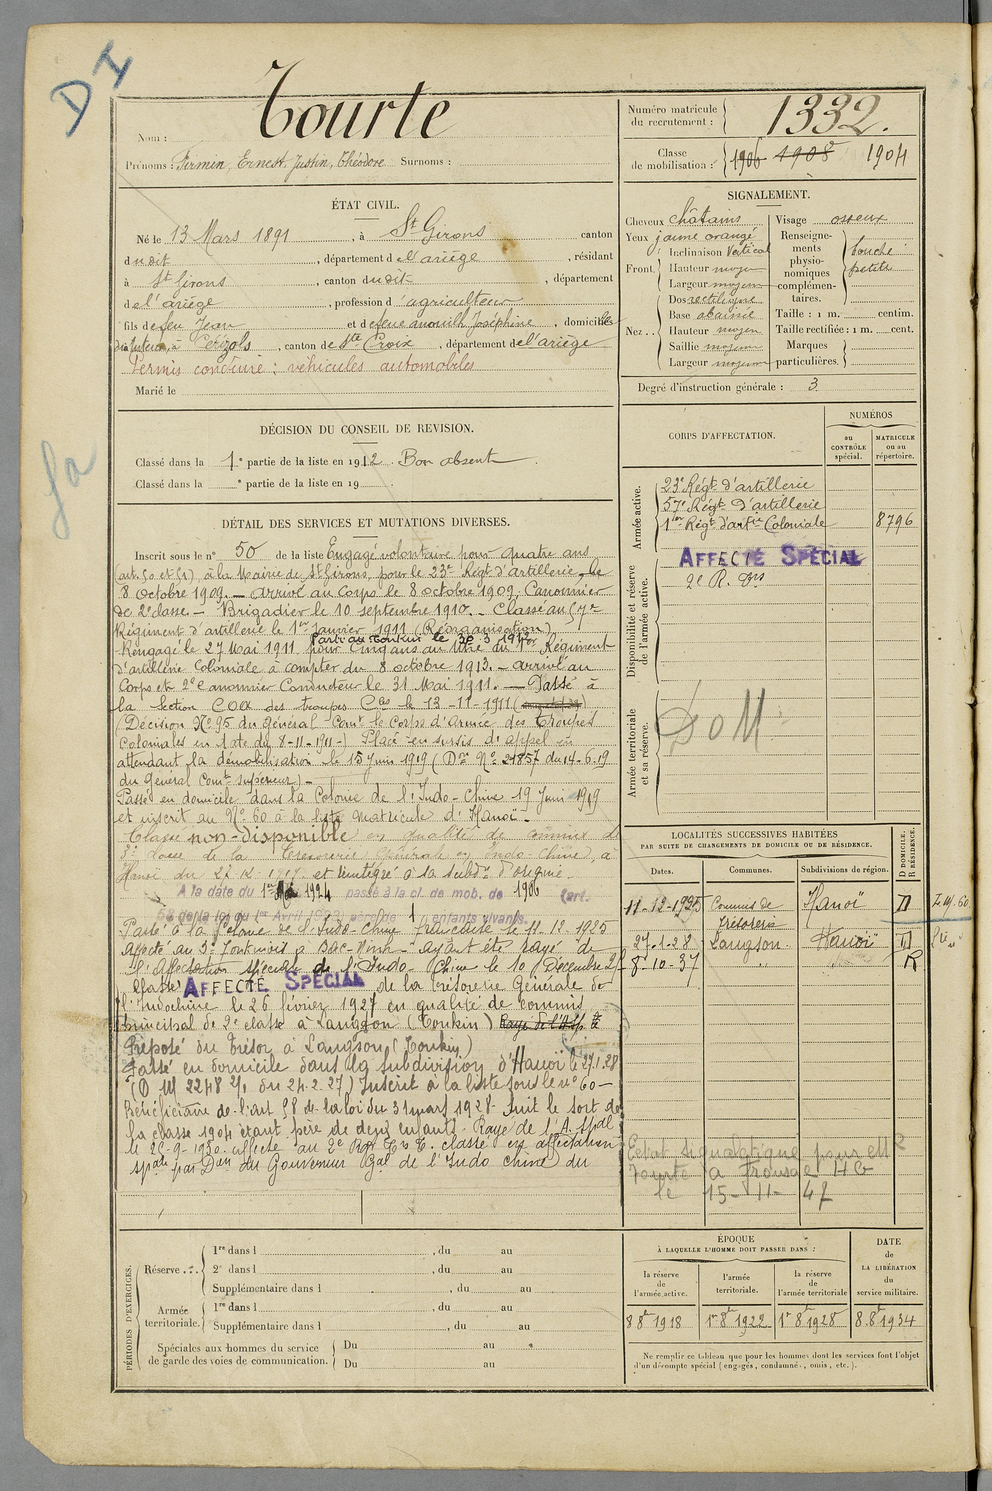 D I
Nom : Tourte
Prénoms : Firmin, Ernest, Justin, Théodore Surnoms :
Numéro matricule du recrutement : 1332.
Classe de mobilisation : 1906 1908 1904
ÉTAT CIVIL.
Né le 13 Mars 1891, à St Girons canton
dudit, département de l'ariège, résidant
à St Girons, canton dudit, département
de l'ariège, profession d'agriculteur
fils de feu Jean et de feue anouilh Joséphine, domiciliés
à Cérizols, canton de Ste Croix, département de l'ariège
Permis conduire : véhicules automobiles
Marié le
SIGNALEMENT.
Cheveux châtains
Yeux jaune orangé
Front. Inclinaison Vertical
Hauteur moyen
Largeur moyen
Nez. Dos rectiligne
Base abaissé
Hauteur moyen
Saillie moyen
Largeur moyen
Visage osseux
Renseignements physionomiques complémentaires. bouche petite
Taille : 1 m. centim.
Taille rectifiée : 1 m. cent.
Marques particulières.
Degré d'instruction générale : 3
DÉCISION DU CONSEIL DE REVISION.
Classé dans la 1e partie de la liste en 1912. Bon absent
Classé dans la e partie de la liste en 19
CORPS D'AFFECTATION.
NUMÉROS
au CONTRÔLE spécial.
MATRICULE ou au répertoire.
Armée active.
23e Régt d'artillerie
57e Régt d'artillerie
1er Régt d'artie Coloniale 8796
Disponibilité et réserve de l'armée active.
AFFECTÉ SPÉCIAL
2e R.
Armée territoriale et sa réserve.
DoM
DÉTAIL DES SERVICES ET MUTATIONS DIVERSES.
Inscrit sous le n° 50 de la liste Engagé volontaire pour quatre ans
(art. 50 et 51) à la Mairie de St Girons, pour le 23e Régt d'Artillerie le
8 Octobre 1909. — arrivé au Corps le 8 octobre 1909, Canonnier
de 2e classe. — Brigadier le 10 septembre 1910. — Classé au 57e
Régiment d'artillerie le 1er Janvier 1911 (Réorganisation)
Parti au Tonkin le
Rengagé le 27 Mai 1911 pour cinq ans au titre du 1er Régiment
d'artillerie Coloniale à compter du 8 octobre 1913. — arrivé au
Corps et 2e Canonnier Conducteur le 31 Mai 1911. — Passé à
la section COA des troupes Cles le 13-11-1911
(Décision No 95 du Général Comt le Corps d'Armée des Troupes
Coloniales en date du 8-11-1911-) Placé en sursis d'appel en
attendant la démobilisation le 15 juin 1919 (Don No 21857 du 14-6-19
du Général Comt supérieur) —
Passé en domicile dans la Colonie de l'Indo-Chine 19 Juin 1919
et inscrit au No 60 à la liste matricule d'Hanoï —
Classé non-disponible en qualité de commis de
classe de la Trésorerie Générale en Indo-Chine, à
Hanoï du et réintégré à sa subdon d'origine.
A la date du 1er Mai 1924 passé à la cl. de mob. de 1906 (art.
58 de la loi du 1er Avril 1923) père de 1 enfants vivants.
Passé à la Colonie de l'Indo-Chine Française le 11.12.1925
Affecté au 3e Tonkinois à Bac-Ninh - ayant été rayé de
l'Affectation spéciale de l'Indo-Chine le 10 Décembre
Classé AFFECTÉ SPÉCIAL de la Trésorerie Générale de
l'Indochine le 26 février 1927 en qualité de Commis
principal de 2e classe à Langson (Tonkin)
Préposé du Trésor à Langson (Tonkin)
Passé en domicile dans la subdivision d'Hanoï le 27.1.28
(D M 2248 2/1 du 24.2.27) Inscrit à la liste sous le n° 60 —
Bénéficiaire de l'art 58 de la loi du 31 mars 1928 Suit le sort de
la classe 1904 étant père de deux enfants. Rayé de l'A. Spdle
le affecté au 2e Classé en affectation
spale par Don du Gouverneur Gal de l'Indo chine du
LOCALITÉS SUCCESSIVES HABITÉES
PAR SUITE DE CHANGEMENTS DE DOMICILE OU DE RÉSIDENCE.
Dates. Communes. Subdivisions de région. D DOMICILE. R RÉSIDENCE.
11-12-1925 Commis de Trésorerie Hanoï D
27-1-28 Langson Hanoï D
8-10-37 " R
Extrait signalétique pour
Tourte à
le 15-11-47
PÉRIODES D'EXERCICES.
Réserve
1re dans l , du au
2e dans l , du au
Supplémentaire dans l , du au
Armée territoriale.
1re dans l , du au
Supplémentaire dans l , du au
Spéciales aux hommes du service de garde des voies de communication.
Du au
Du au
ÉPOQUE
À LAQUELLE L'HOMME DOIT PASSER DANS :
la réserve de l'armée active.
l'armée territoriale.
la réserve de l'armée territoriale
DATE de LA LIBÉRATION du service militaire.
8 8bre 1918 1er 8bre 1922 1er 8bre 1928 8.8bre 1934
Ne remplir ce tableau que pour les hommes dont les services font l'objet
d'un décompte spécial (engagés, condamnés, omis, etc.).